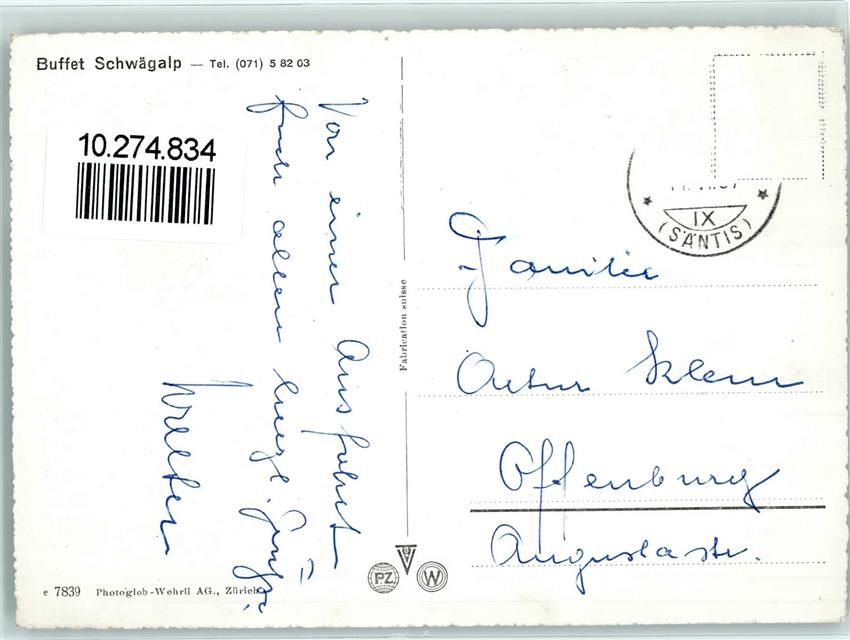 Buffet Schwägalp — Tel. (071) 5 82 03
10.274.834
Von einer Ausfahrt
Euch allen herzl. Grüße
Walter
Fabrication suisse
IX
(SÄNTIS)
Familie
Artur Klem
Offenburg
Augustastr.
PZ
W
e 7839 Photoglob-Wehrli AG., Zürich